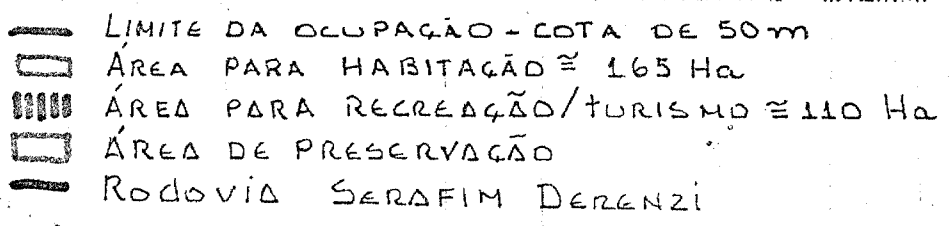 LIMITE DA OCUPAÇÃO - COTA DE 50m
ÁREA PARA HABITAÇÃO ≅ 165 Ha
ÁREA PARA RECREAÇÃO/TURISMO ≅ 110 Ha
ÁREA DE PRESERVAÇÃO
RODOVIA SERAFIM DERENZI